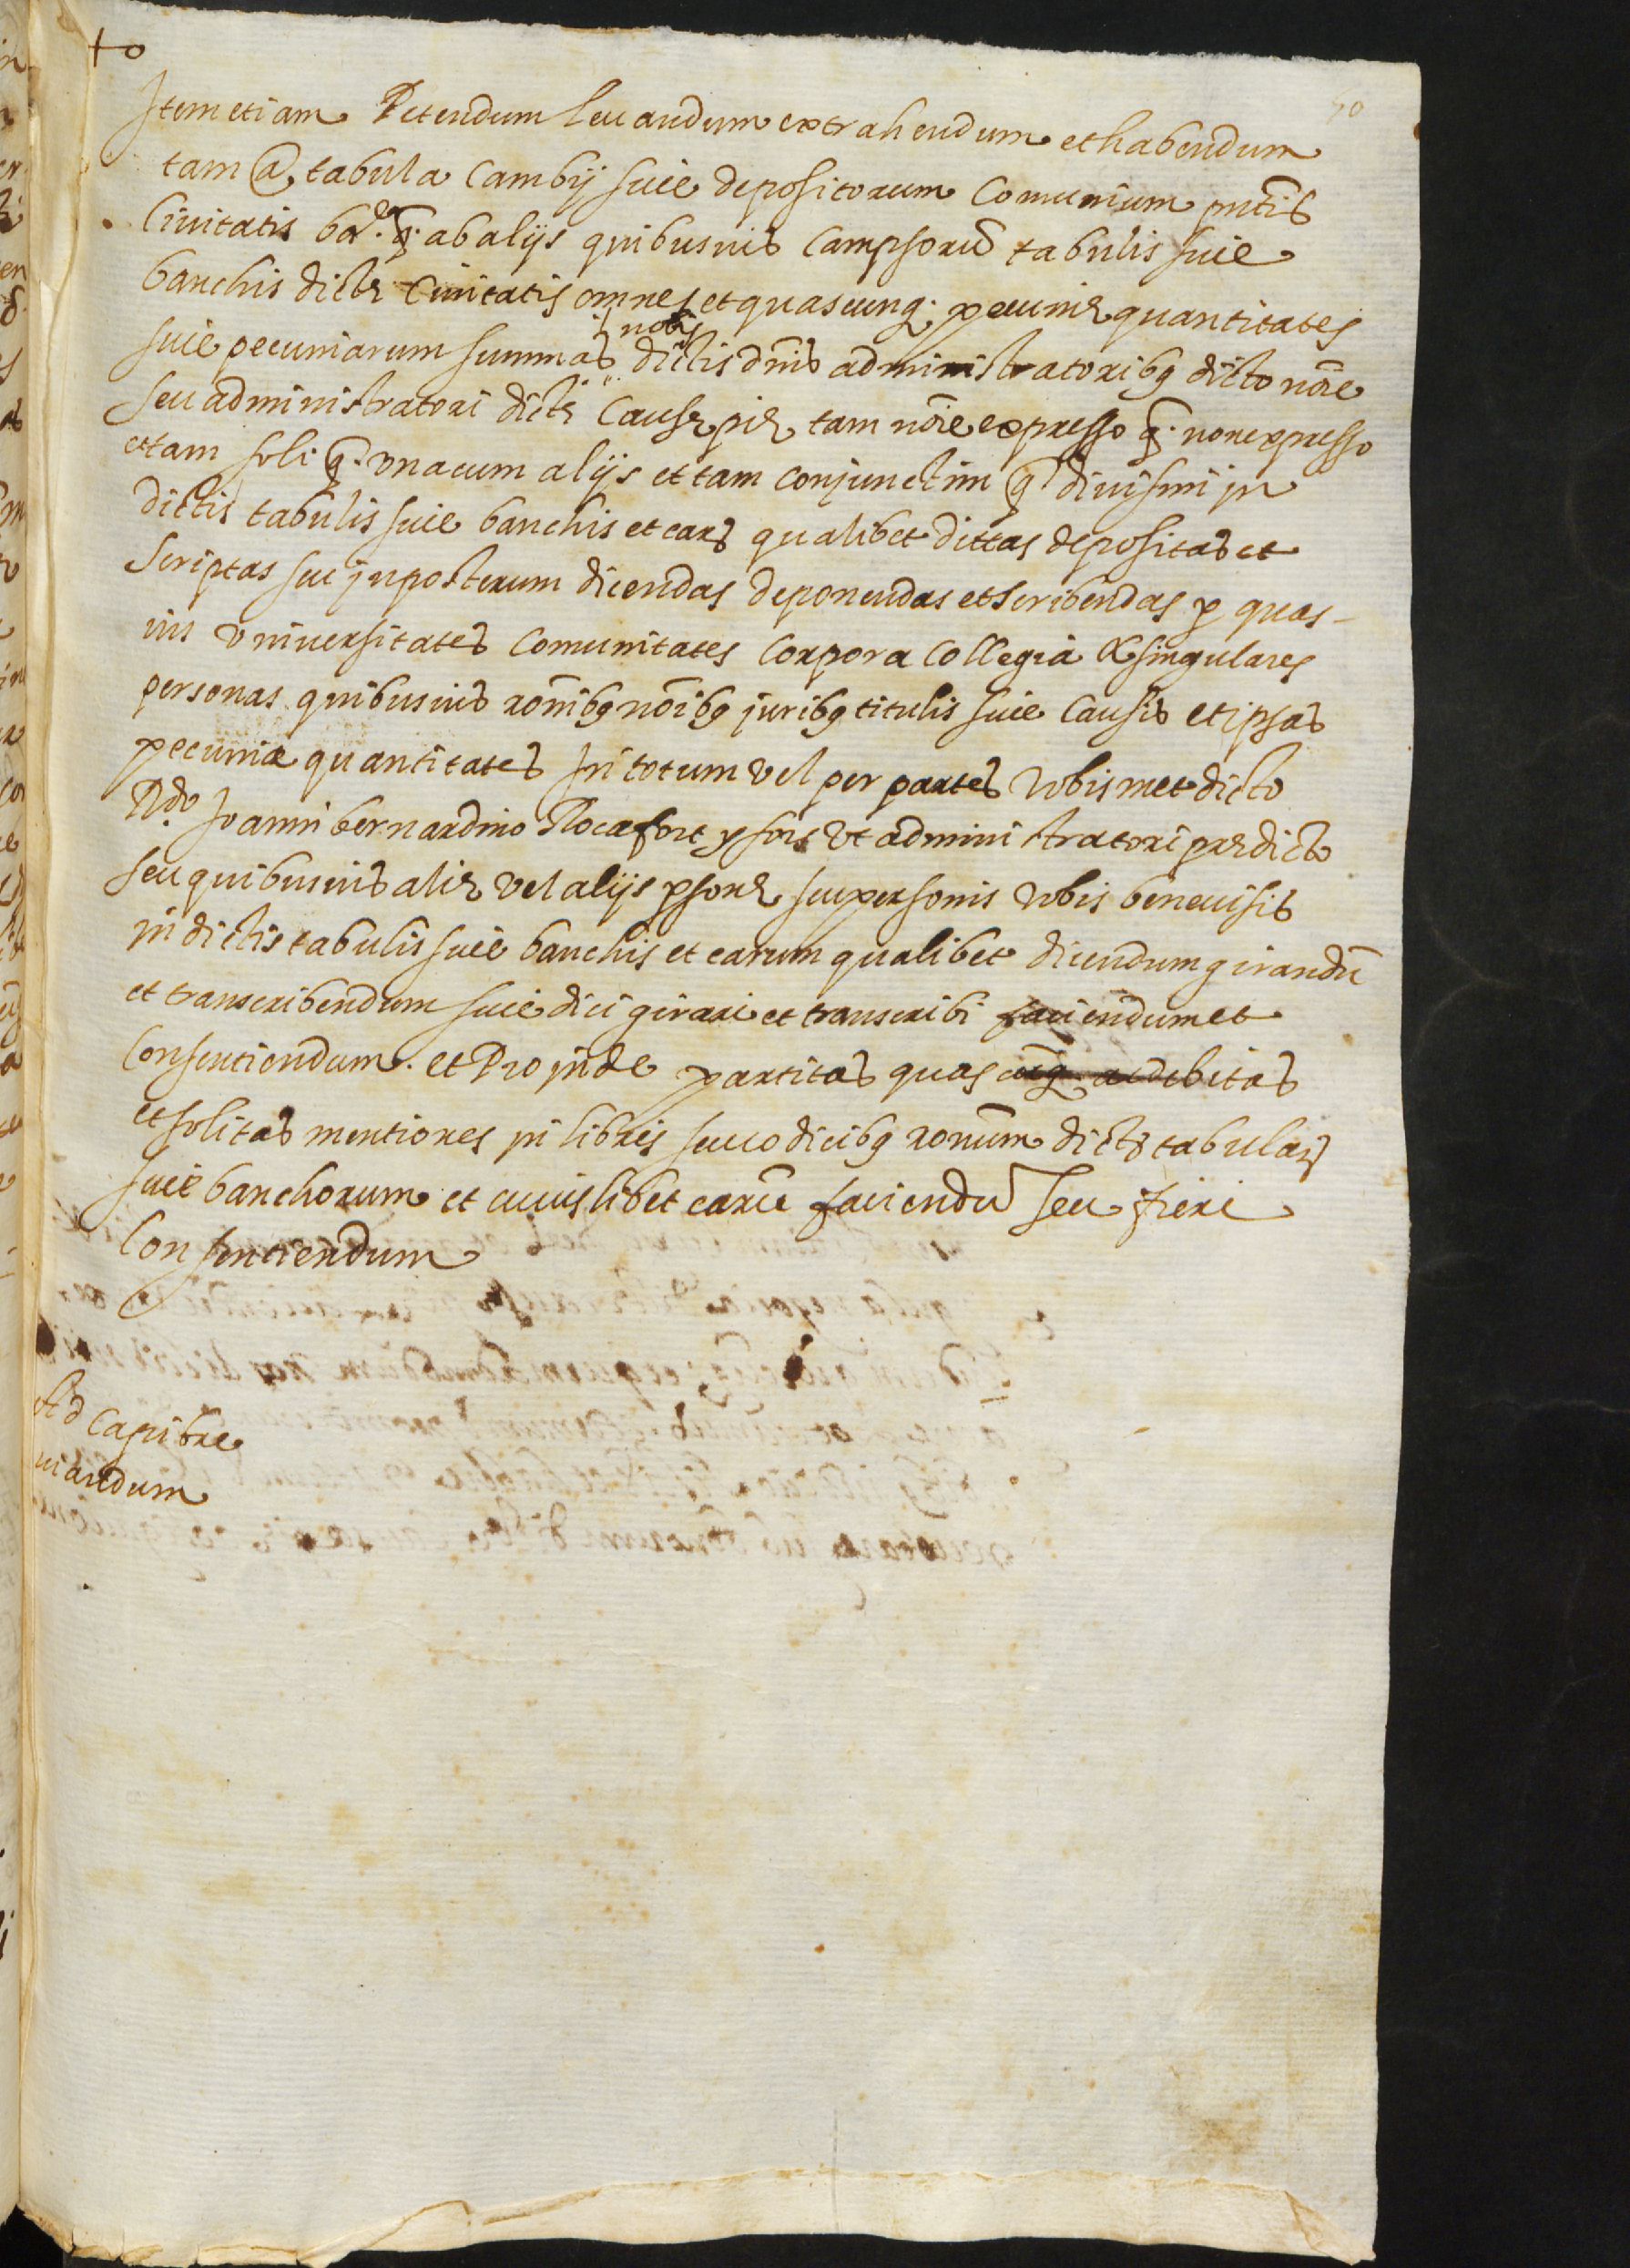 +o
50
Item etiam Petendum leuandum extrahendum et habendum
tam a tabula Cambij siue depositorum Comunium pntis
Ciuitatis bar. q. ab alijs quibusuis Campsorū tabulis siue
banchis dictę Ciuitatis omnes et quascunq. pecunię quantitates
nobis
siue pecuniarum summas dictis dnis administratoribq dicto nōie
seu administratori dictę Causę pię tam nōie expresso q. non expresso
et tam soli q. vna cum alijs et tam conjunctim q. diuisim jn
dictis tabulis siue banchis et earꝫ qualibet dittas depositas et
scriptas seu jnposterum dicendas deponendas et scribendas p quas-
uis vniuersitates Comunitates Corpora Collegia & singulares
personas quibusuis rōnibq nōibq juribq titulis siue Causis et ipsas
pecuniæ quantitates In totum vel per partes vobismet dicto
Rdo Joanni bernardino Rocafort ut administratori prędicto
seu quibusuis alię vel alijs psonę seu personis vobis beneuisis
in dictis tabulis siue banchis et earum qualibet dicendum girandū
et transcribendum siue dici girari et transcribi faciendum et
Consentiendum. et Proinde partitas quascūq. ac debitas
et solitas mentiones in libris seu codicibq ronum dictę tabulaꝫ
siue banchorum et cuiuslibet earū faciendū seu fieri
Consentiendum
Ad Capibre
uiandum